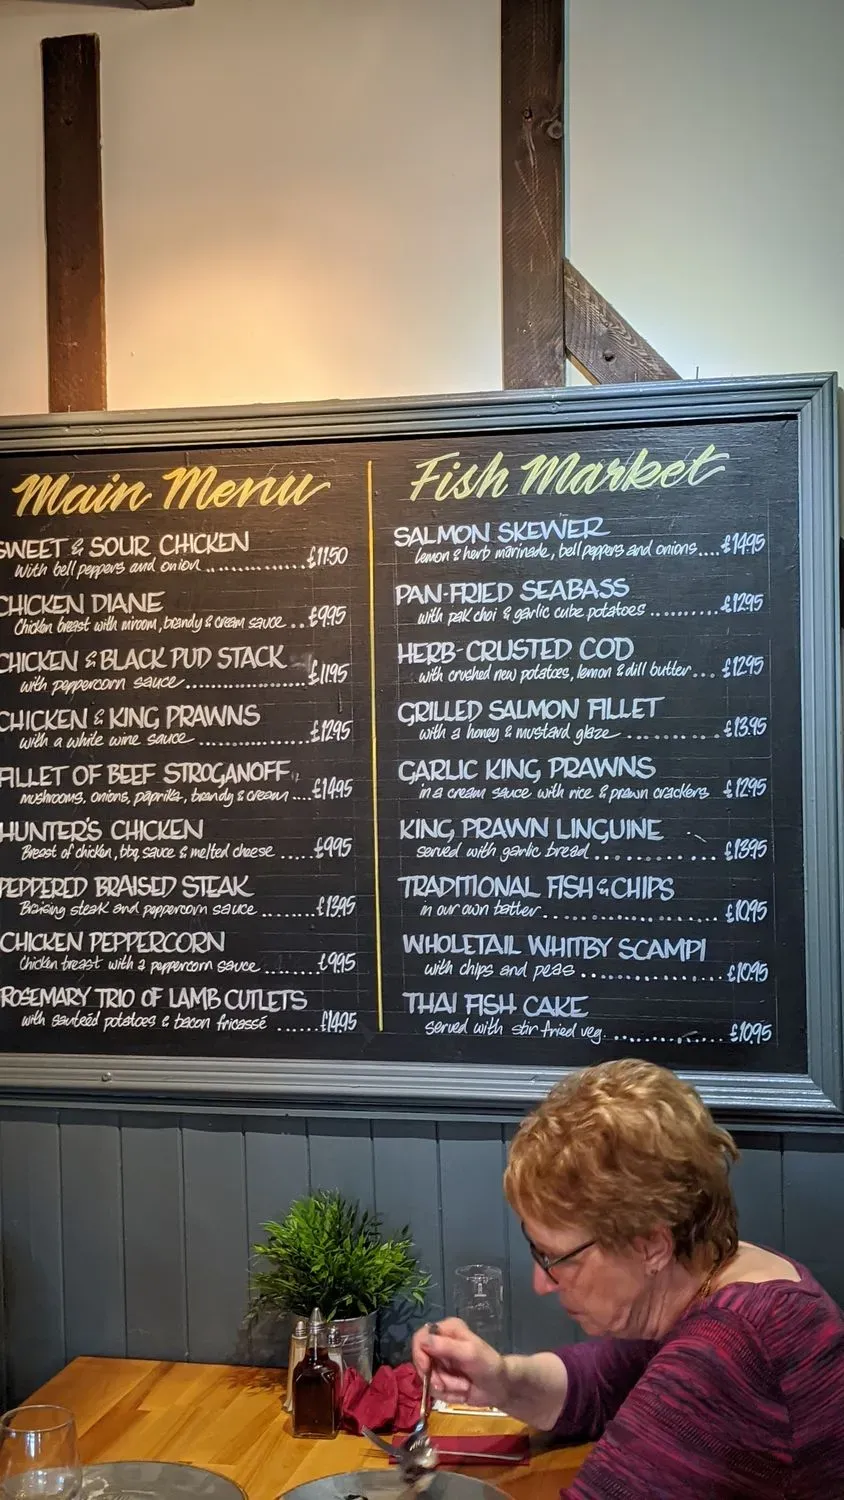 Main Menu
SWEET & SOUR CHICKEN
With bell peppers and onion ............... £11.50
CHICKEN DIANE
Chicken breast with mroom, brandy & cream sauce ... £9.95
CHICKEN & BLACK PUD STACK
with peppercorn sauce ................. £11.95
CHICKEN & KING PRAWNS
with a white wine sauce ............... £12.95
FILLET OF BEEF STROGANOFF
mushrooms, onions, paprika, brandy & cream .... £14.95
HUNTER'S CHICKEN
Breast of chicken, bbq sauce & melted cheese ..... £9.95
PEPPERED BRAISED STEAK
Braising steak and peppercorn sauce ........ £13.95
CHICKEN PEPPERCORN
Chicken breast with a peppercorn sauce ........ £9.95
ROSEMARY TRIO OF LAMB CUTLETS
with sauteéd potatoes & bacon fricassé ...... £14.95
Fish Market
SALMON SKEWER
lemon & herb marinade, bell peppers and onions .... £14.95
PAN-FRIED SEABASS
with pak choi & garlic cube potatoes .......... £12.95
HERB-CRUSTED COD
with crushed new potatoes, lemon & dill butter ... £12.95
GRILLED SALMON FILLET
with a honey & mustard glaze ............... £13.95
GARLIC KING PRAWNS
in a cream sauce with rice & prawn crackers £12.95
KING PRAWN LINGUINE
served with garlic bread ................ £13.95
TRADITIONAL FISH & CHIPS
in our own batter ........................ £10.95
WHOLETAIL WHITBY SCAMPI
with chips and peas .................. £10.95
THAI FISH CAKE
served with stir fried veg. ............... £10.95